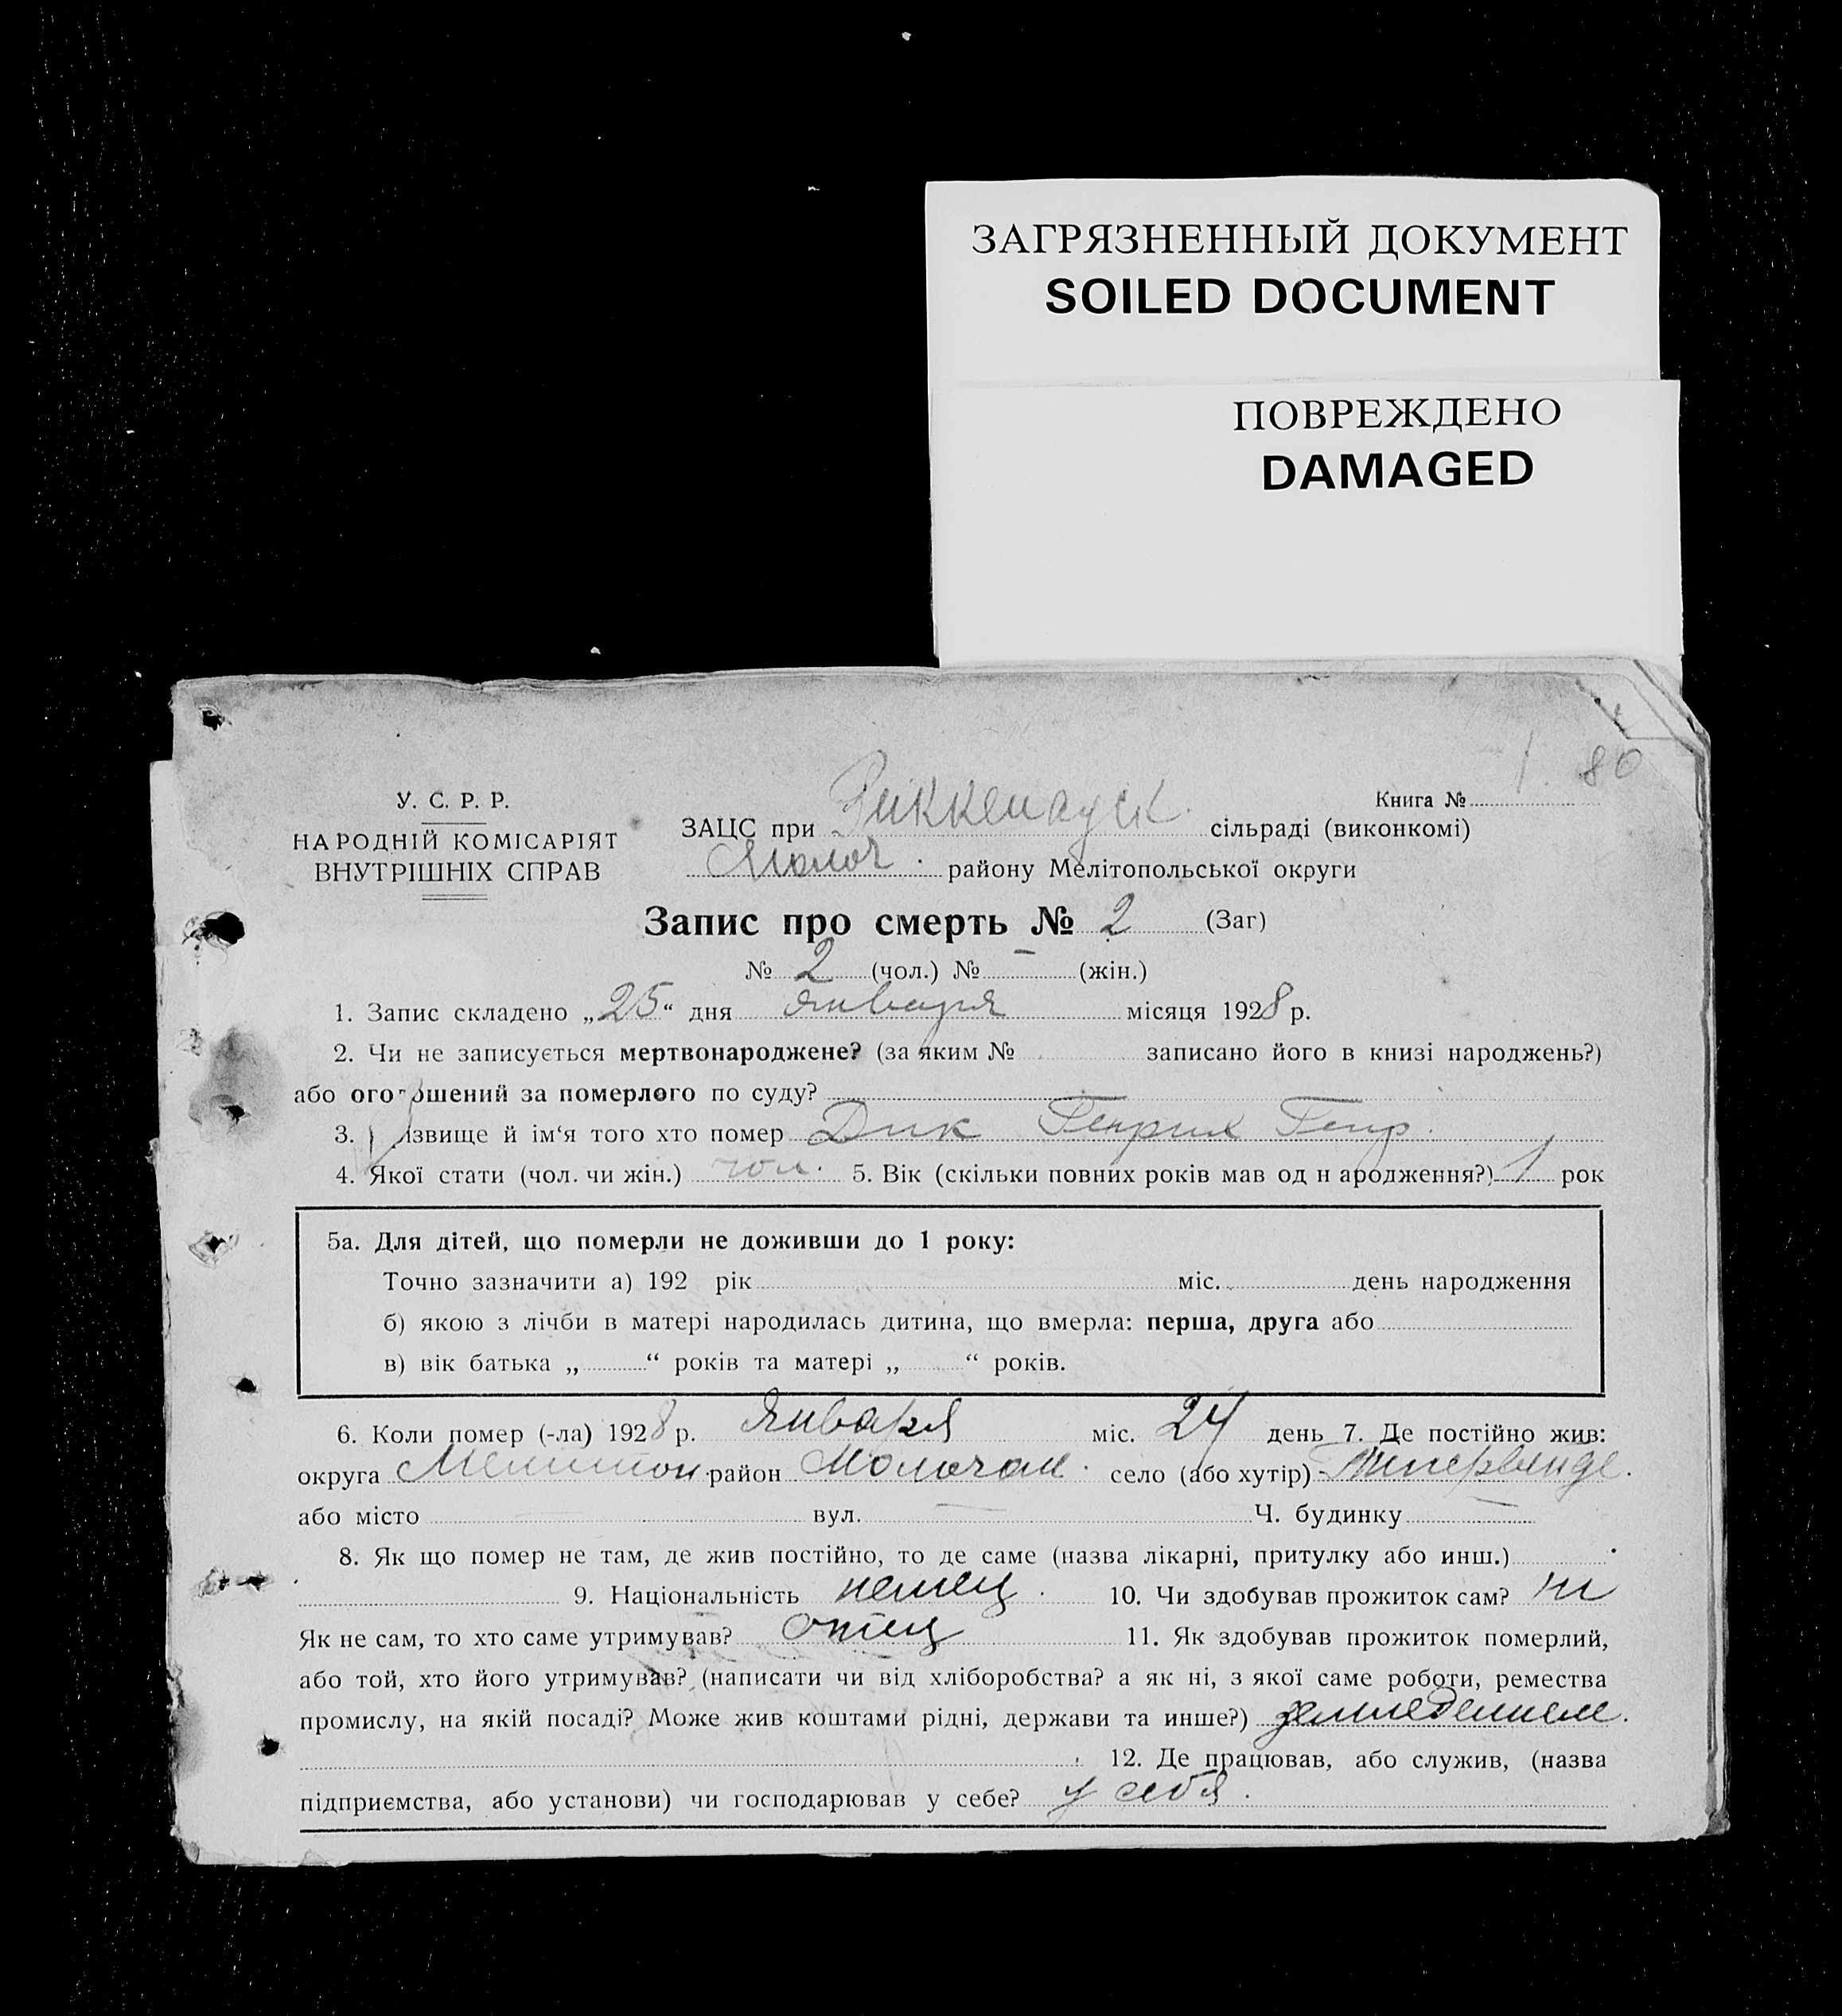 ЗАГРЯЗНЕННЫЙ ДОКУМЕНТ
SOILED DOCUMENT
ПОВРЕЖДЕНО
DAMAGED
1. 80
У. С. Р. Р.
НАРОДНІЙ КОМІСАРІЯТ
ВНУТРІШНІХ СПРАВ
Книга №
ЗАЦС при Риккенауск. сільраді (виконкомі)
Молоч. району Мелітопольської округи
Запис про смерть № 2 (Заг)
№ 2 (чол.) № – (жін.)
1. Запис складено „25“ дня января місяця 1928 р.
2. Чи не записується мертвонароджене? (за яким № записано його в книзі народжень?)
або ого ошений за померлого по суду?
3. ізвище й ім‘я того хто помер Дик Генрих Генр.
4. Якої стати (чол. чи жін.) чол. 5. Вік (скільки повних років мав од н ародження?) 1 рок
5а. Для дітей, що померли не доживши до 1 року:
Точно зазначити а) 192 рік міс. день народження
б) якою з лічби в матері народилась дитина, що вмерла: перша, друга або
в) вік батька „ “ років та матері „ “ років.
6. Коли помер (-ла) 1928 р. Января міс. 24 день 7. Де постійно жив:
округа Мелитоп. район Молочан. село (або хутір) Тигервейде.
або місто — вул. — Ч. будинку —
8. Як що помер не там, де жив постійно, то де саме (назва лікарні, притулку або инш.)
9. Національність немец. 10. Чи здобував прожиток сам? ні
Як не сам, то хто саме утримував? отец 11. Як здобував прожиток померлий,
або той, хто його утримував? (написати чи від хліборобства? а як ні, з якої саме роботи, ремества
промислу, на якій посаді? Може жив коштами рідні, держави та инше?) земледелием.
12. Де працював, або служив, (назва
підприємства, або установи) чи господарював у себе? у себя.